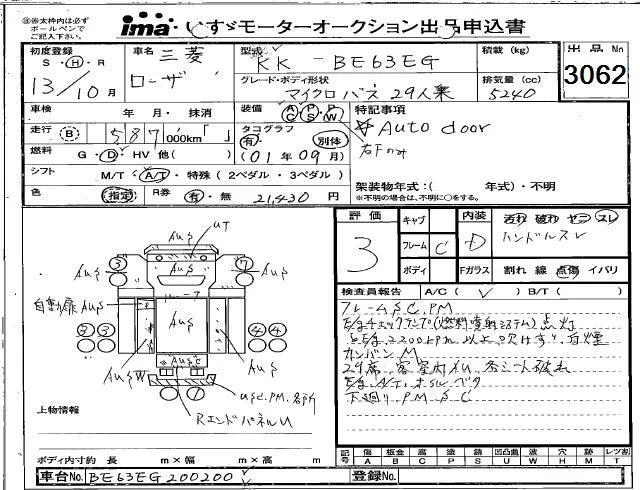 ※太枠内は必ず
ボールペンで
ご記入下さい。
ima いすゞモーターオークション出品申込書
初度登録
S・H・R
13/10月
車名 三菱
ローザ
型式 KK - BE63EG
積載 (kg)
グレード・ボディ形状
マイクロバス 29人乗
排気量 (cc)
5240
出品No
3062
車検 年・月・抹消
走行 B 587,000km「 」
燃料 G・D・HV 他( )
シフト M/T・A/T・特殊(2ペダル・3ペダル)
色 指定 R券 有・無 21,430 円
装備 AC PS PW
タコグラフ
有・ 別体
(01年09月)
特記事項
☆Auto door
右Fのみ
架装物年式:( 年式)・不明
※不明の場合は、不明に○をする。
評価 3
キャブ
フレーム C
ボディ
内装 D
Fガラス
汚れ 破れ ヤニ スレ
ハンドルスレ
割れ 線 点傷 イバリ
検査員報告 A/C( ✓ ) B/T( )
フレームS,C,PM
E/gチェックランプ(燃料噴射システム)点灯
カンバンM
29席、客室内イル、各シート破れ
下廻り P.M S C
AUS
UT
AUS
3
AUS
7
AUS
自動扉 AUS
AUS
AUS
3 3
4 4
AUSW
AUSC
AUS
USC.PM.各所
RエンドパネルU
上物情報
ボディ内寸約 長 m×幅 m×高 m
記号
傷 A
板金 B
腐 C
塗 P
錆 S
凹凸曲 U
波 W
穴 H
汚 M
レンズ割 T
車台No. BE63EG200200
登録No.